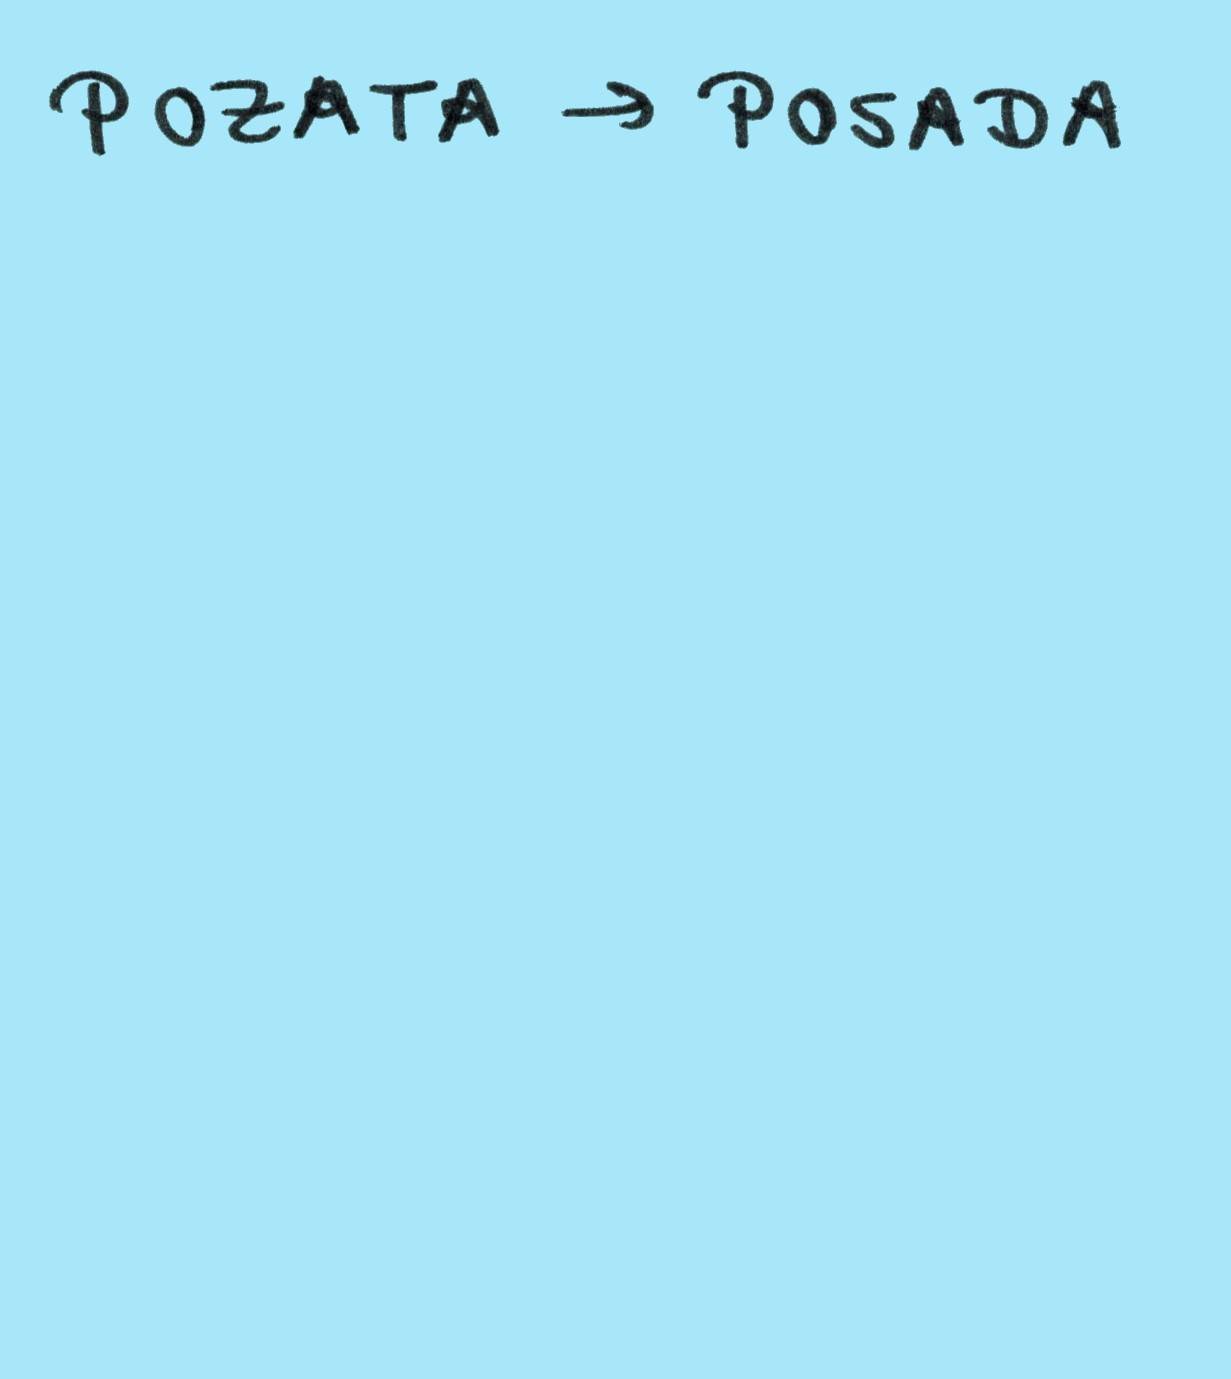 POZATA → POSADA